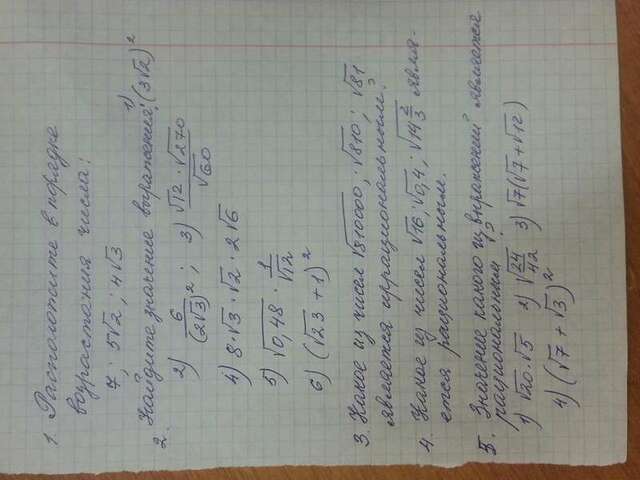 1. Расположите в порядке
возрастания числа:
7; 5√2; 4√3
2. Найдите значение выражения: 1) (3√2)²
2) 6/(2√3)²; 3) √12·√270/√60
4) 8·√3·√2·2√6
5) √0,48 · 1/√12
6) (√23+1)²
3. Какое из чисел √810000; √810; √81
является иррациональным?
4. Какое из чисел √16; √0,4; √14 2/3 явля-
ется рациональным.
5. Значение какого из выражений является
рациональным?
1) √20·√5 2) √24/42 3) √7(√7+√12)
4) (√7+√3)²